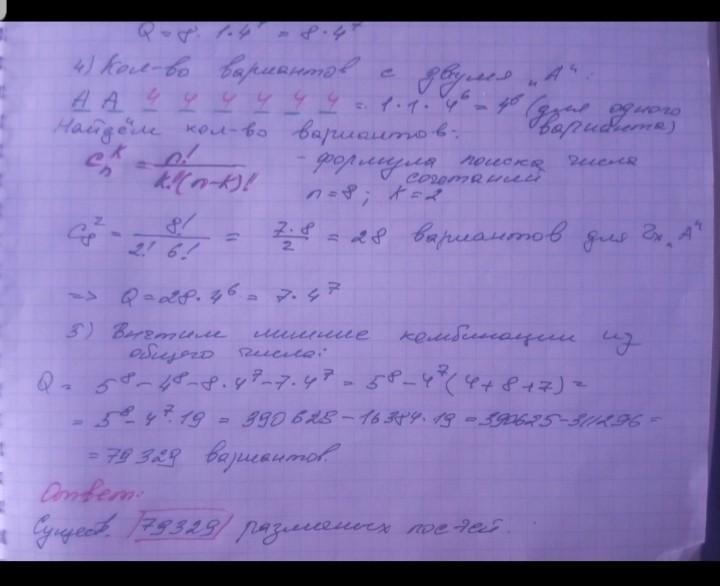 Q = 8 · 1 · 4⁷ = 8 · 4⁷
4) Кол-во вариантов с двумя „А“:
А А 4 4 4 4 4 4 = 1 · 1 · 4⁶ = 4⁶ (для одного варианта)
Найдём кол-во вариантов:
Cₙᴷ = n! / K!(n-K)! - формула поиска числа сочетаний
n = 8 ; K = 2
C₈² = 8! / 2! 6! = 7 · 8 / 2 = 28 вариантов для 2х „А“
=> Q = 28 · 4⁶ = 7 · 4⁷
5) Вычтим лишние комбинации из
общего числа:
Q = 5⁸ - 4⁸ - 8 · 4⁷ - 7 · 4⁷ = 5⁸ - 4⁷ (4 + 8 + 7) =
= 5⁸ - 4⁷ · 19 = 390625 - 16384 · 19 = 390625 - 311296 =
= 79329 вариантов.
Ответ:
Сущест. 79329 различных